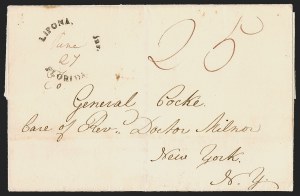 LIPONA,
June
27
FLORIDA
25
General Cocke.
Care of Revd. Doctor Milnor
New York.
N.Y.